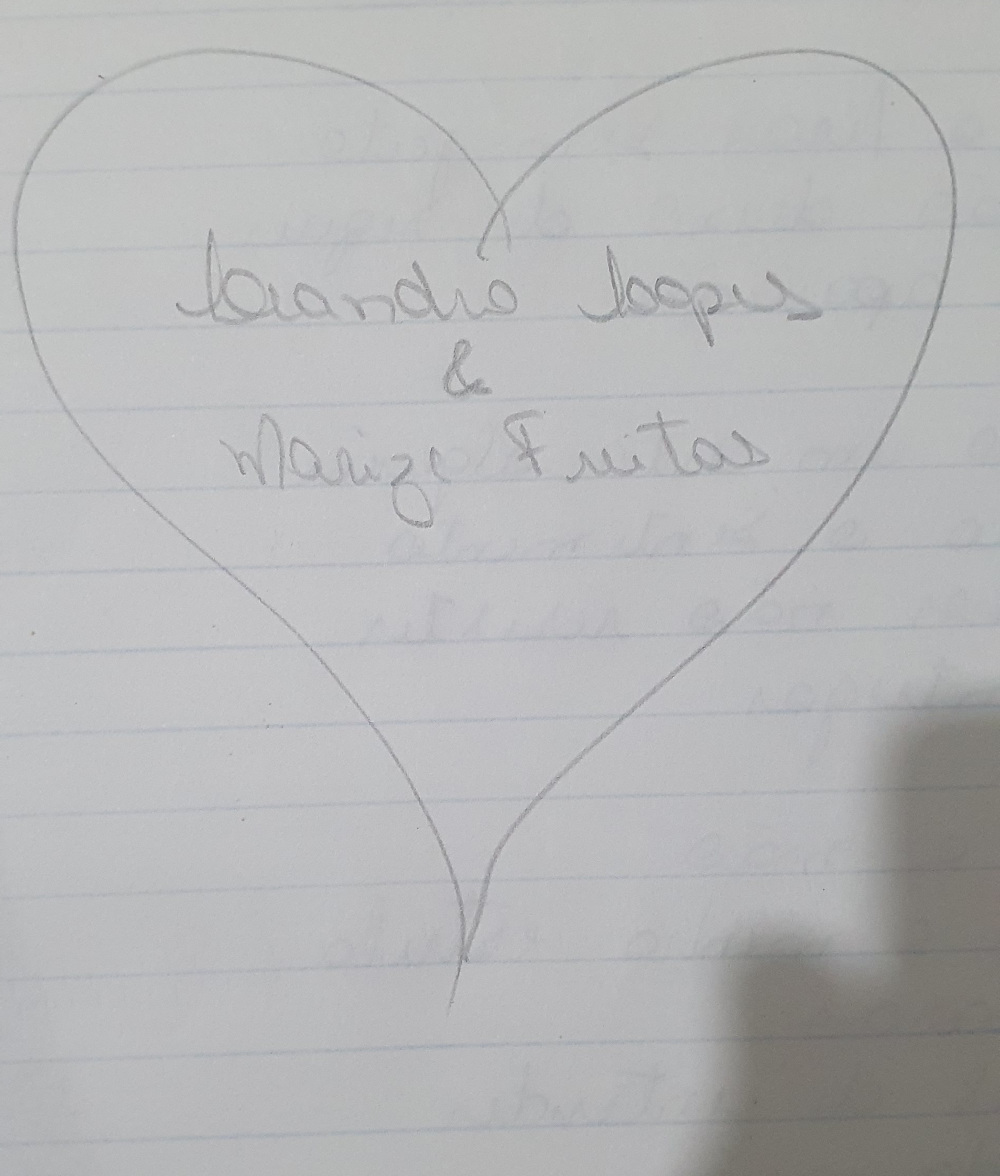 Leandro Loopes
&
Marize Freitas